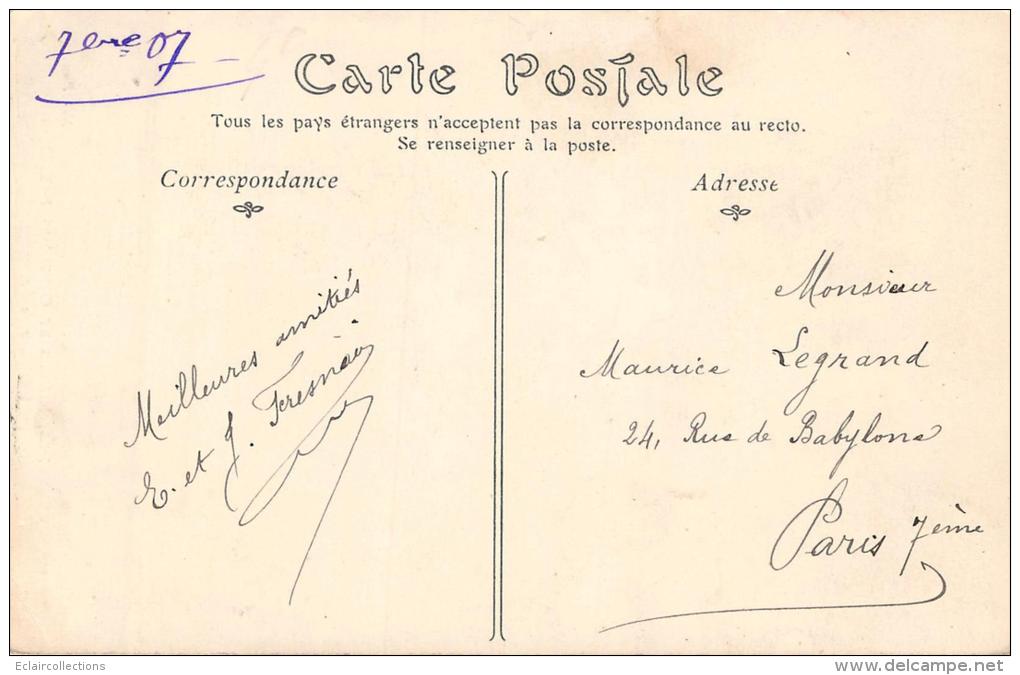 7bre 07
Carte Postale
Tous les pays étrangers n'acceptent pas la correspondance au recto.
Se renseigner à la poste.
Correspondance
Meilleures amitiés
E. et J.
Adresse
Monsieur
Maurice Legrand
24, Rue de Babylone
Paris 7ème
Eclaircollections
www.delcampe.net